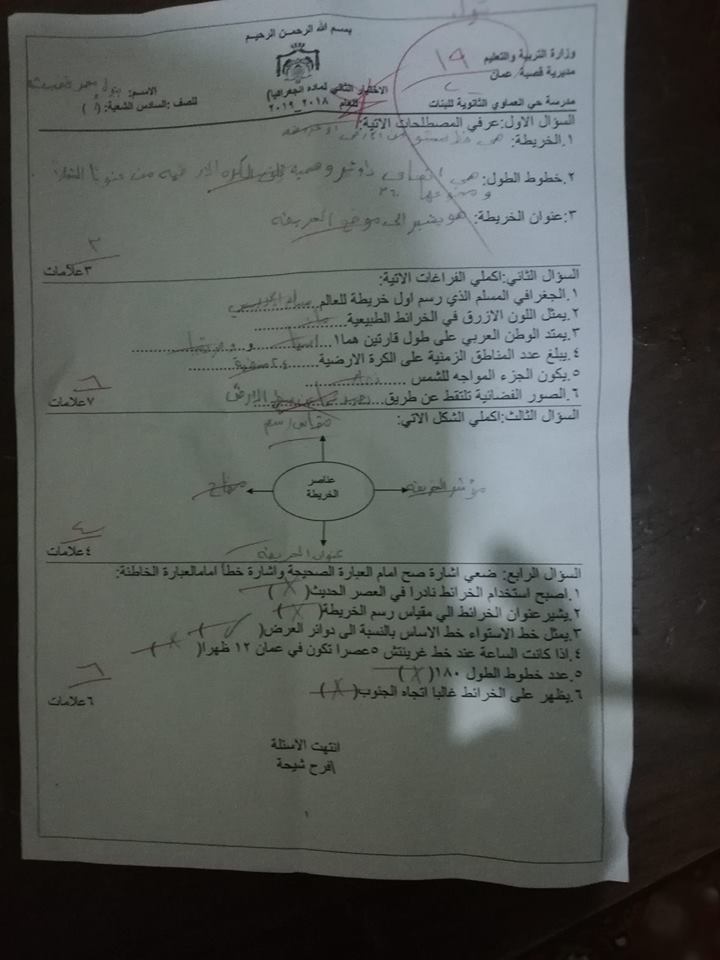 بتول
بسم الله الرحمن الرحيم
وزارة التربية والتعليم
مديرية قصبة/عمان
١٩
٢٠
الاختبار الثاني لماده الجغرافيا)
الاسم: بتول
مدرسة حي العماوي الثانوية للبنات
للعام ٢٠١٨_٢٠١٩
للصف :السادس الشعبة: (أ)
السؤال الاول:عرفي المصطلحات الاتية:
١.الخريطة: هي
٢.خطوط الطول: هي انصاف دوائر وهمية الكرة الارضية من
٣٦٠
٣:عنوان الخريطة: هو يشير الى موضوع الخريطة
٣
٣علامات
السؤال الثاني:اكملي الفراغات الاتية:
١.الجغرافي المسلم الذي رسم اول خريطة للعالم........الادريسي
٢.يمثل اللون الازرق في الخرائط الطبيعية ........
٣.يمتد الوطن العربي على طول قارتين هما١...اسيا...و...افريقيا...
٤.يبلغ عدد المناطق الزمنية على الكرة الارضية ...٢٤ منطقة...
٥.يكون الجزء المواجه للشمس ...نهار...
٦.الصور الفضائية تلتقط عن طريق........الارض
٦
٧علامات
السؤال الثالث:اكملي الشكل الاتي:
مقياس رسم
عناصر
الخريطة
مفتاح
عنوان الخريطة
٤
٤علامات
السؤال الرابع: ضعي اشارة صح امام العبارة الصحيحة واشارة خطأ امامالعبارة الخاطئة:
١.اصبح استخدام الخرائط نادرا في العصر الحديث( X )
٢.يشيرعنوان الخرائط الي مقياس رسم الخريطة( X )
٣.يمثل خط الاستواء خط الاساس بالنسبة الى دوائر العرض( ✓ )
٤.اذا كانت الساعة عند خط غرينتش ٥عصرا تكون في عمان ١٢ ظهرا( X )
٥.عدد خطوط الطول ١٨٠( X )
٦.يظهر على الخرائط غالبا اتجاه الجنوب( X )
٦
٦علامات
انتهت الاسئلة
\فرح شيحة
١